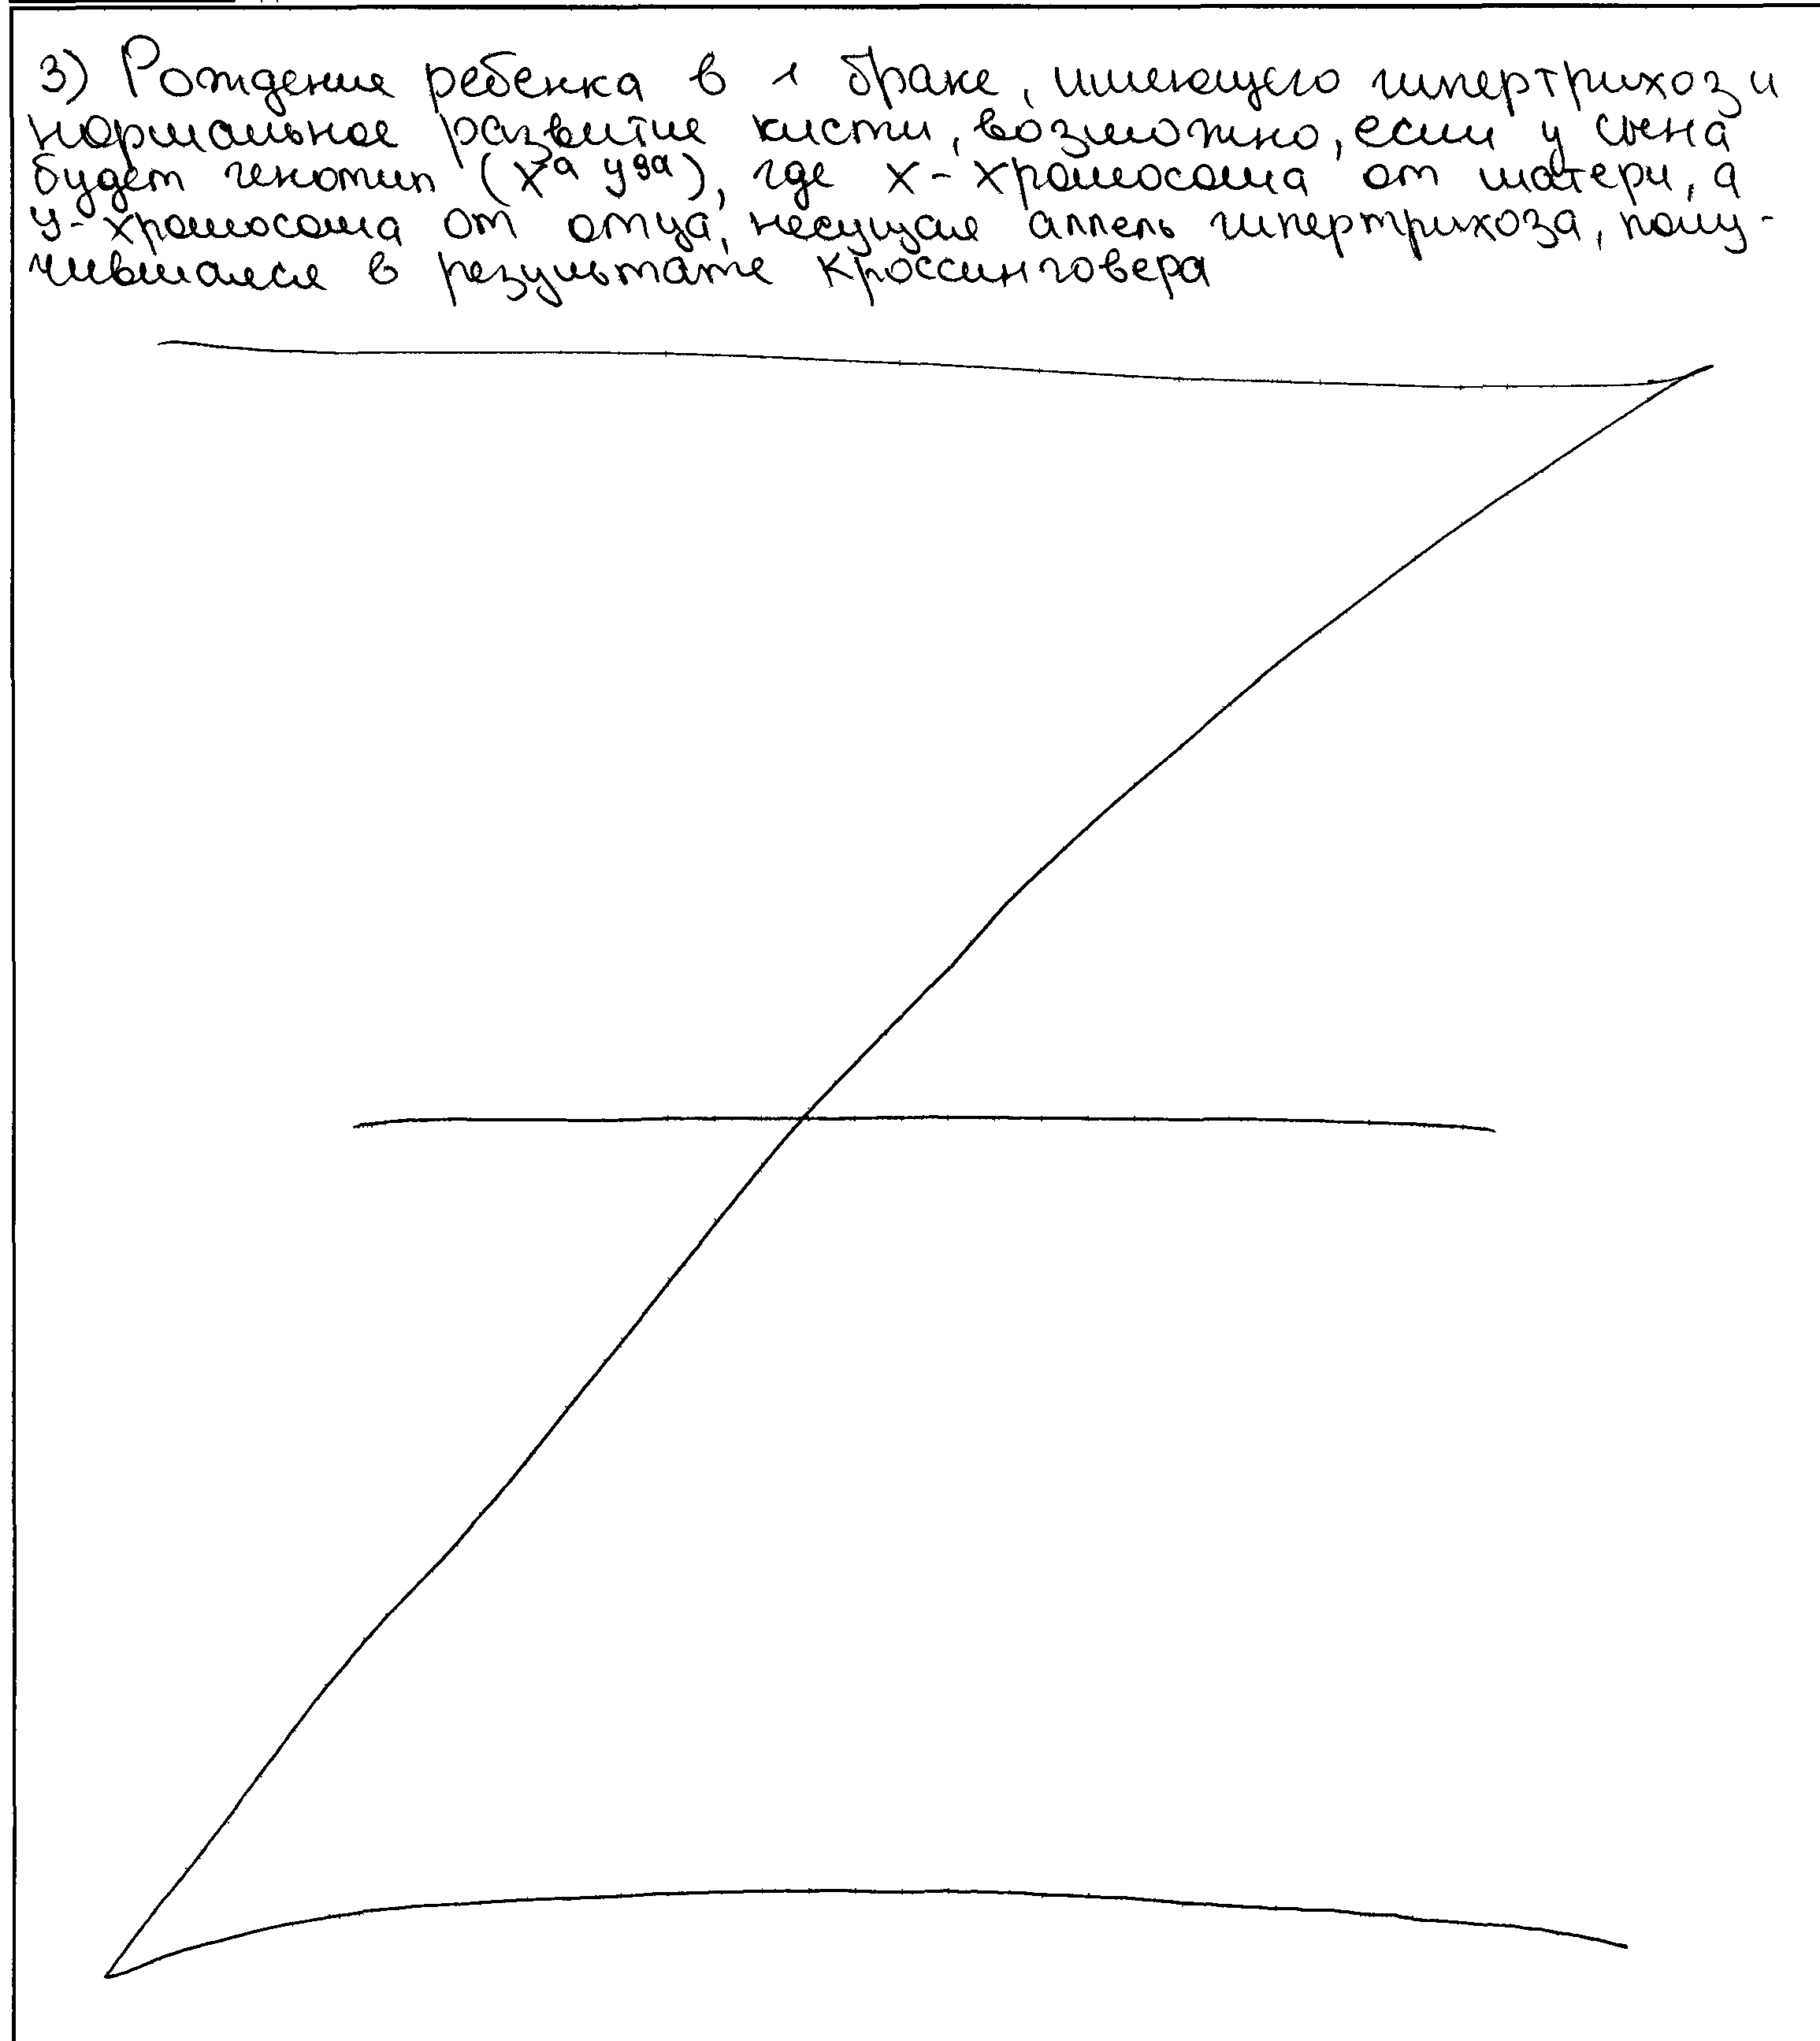 3) Рождение ребенка в 1 браке, имеющего гипертрихоз и
нормальное развитие кисти, возможно, если у сына
будет генотип (Xᵃ Yᵍᵃ), где X-хромосома от матери, а
Y-хромосома от отца, несущая аллель гипертрихоза, полу-
чившаяся в результате кроссинговера